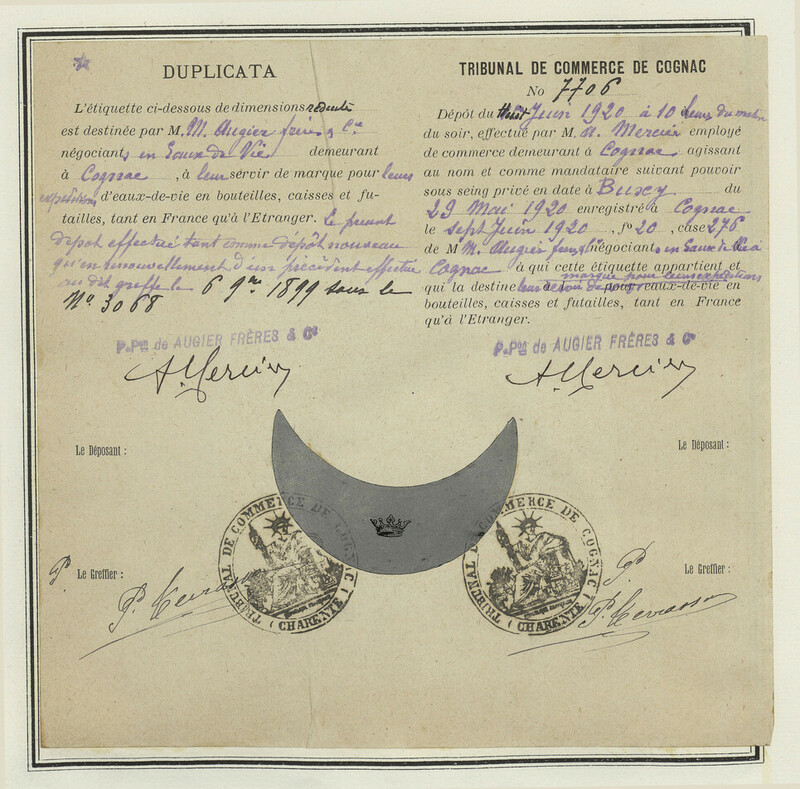 DUPLICATA
L'étiquette ci-dessous de dimensions réduites
est destinée par M. M. Augier frères & Cie
négociants en Eaux de Vie demeurant
à Cognac, à leur servir de marque pour leurs
expéditions d'eaux-de-vie en bouteilles, caisses et fu-
tailles, tant en France qu'à l'Etranger. Le présent
dépôt effectué tant comme dépôt nouveau
qu'en renouvellement d'un précédent effectué
au dit greffe le 6 9bre 1899 sous le
No 3068
P.Pon de AUGIER FRÈRES & Cie
A. Mercier
Le Déposant :
Le Greffier :
TRIBUNAL DE COMMERCE DE COGNAC
( CHARENTE )
TRIBUNAL DE COMMERCE DE COGNAC
No 7706
Dépôt du huit Juin 1920 à 10 heures du matin
du soir, effectué par M. A. Mercier employé
de commerce demeurant à Cognac agissant
au nom et comme mandataire suivant pouvoir
sous seing privé en date à Buxy du
29 Mai 1920 enregistré à Cognac
le sept Juin 1920, fo 20, case 276
de M M. Augier frères & Cie négociants en Eaux de Vie à
Cognac à qui cette étiquette appartient et
marque pour leurs expéditions
qui la destine à pour eaux-de-vie en
bouteilles, caisses et futailles, tant en France
qu'à l'Etranger.
P.Pon de AUGIER FRÈRES & Cie
A. Mercier
Le Déposant :
Le Greffier :
TRIBUNAL DE COMMERCE DE COGNAC
( CHARENTE )